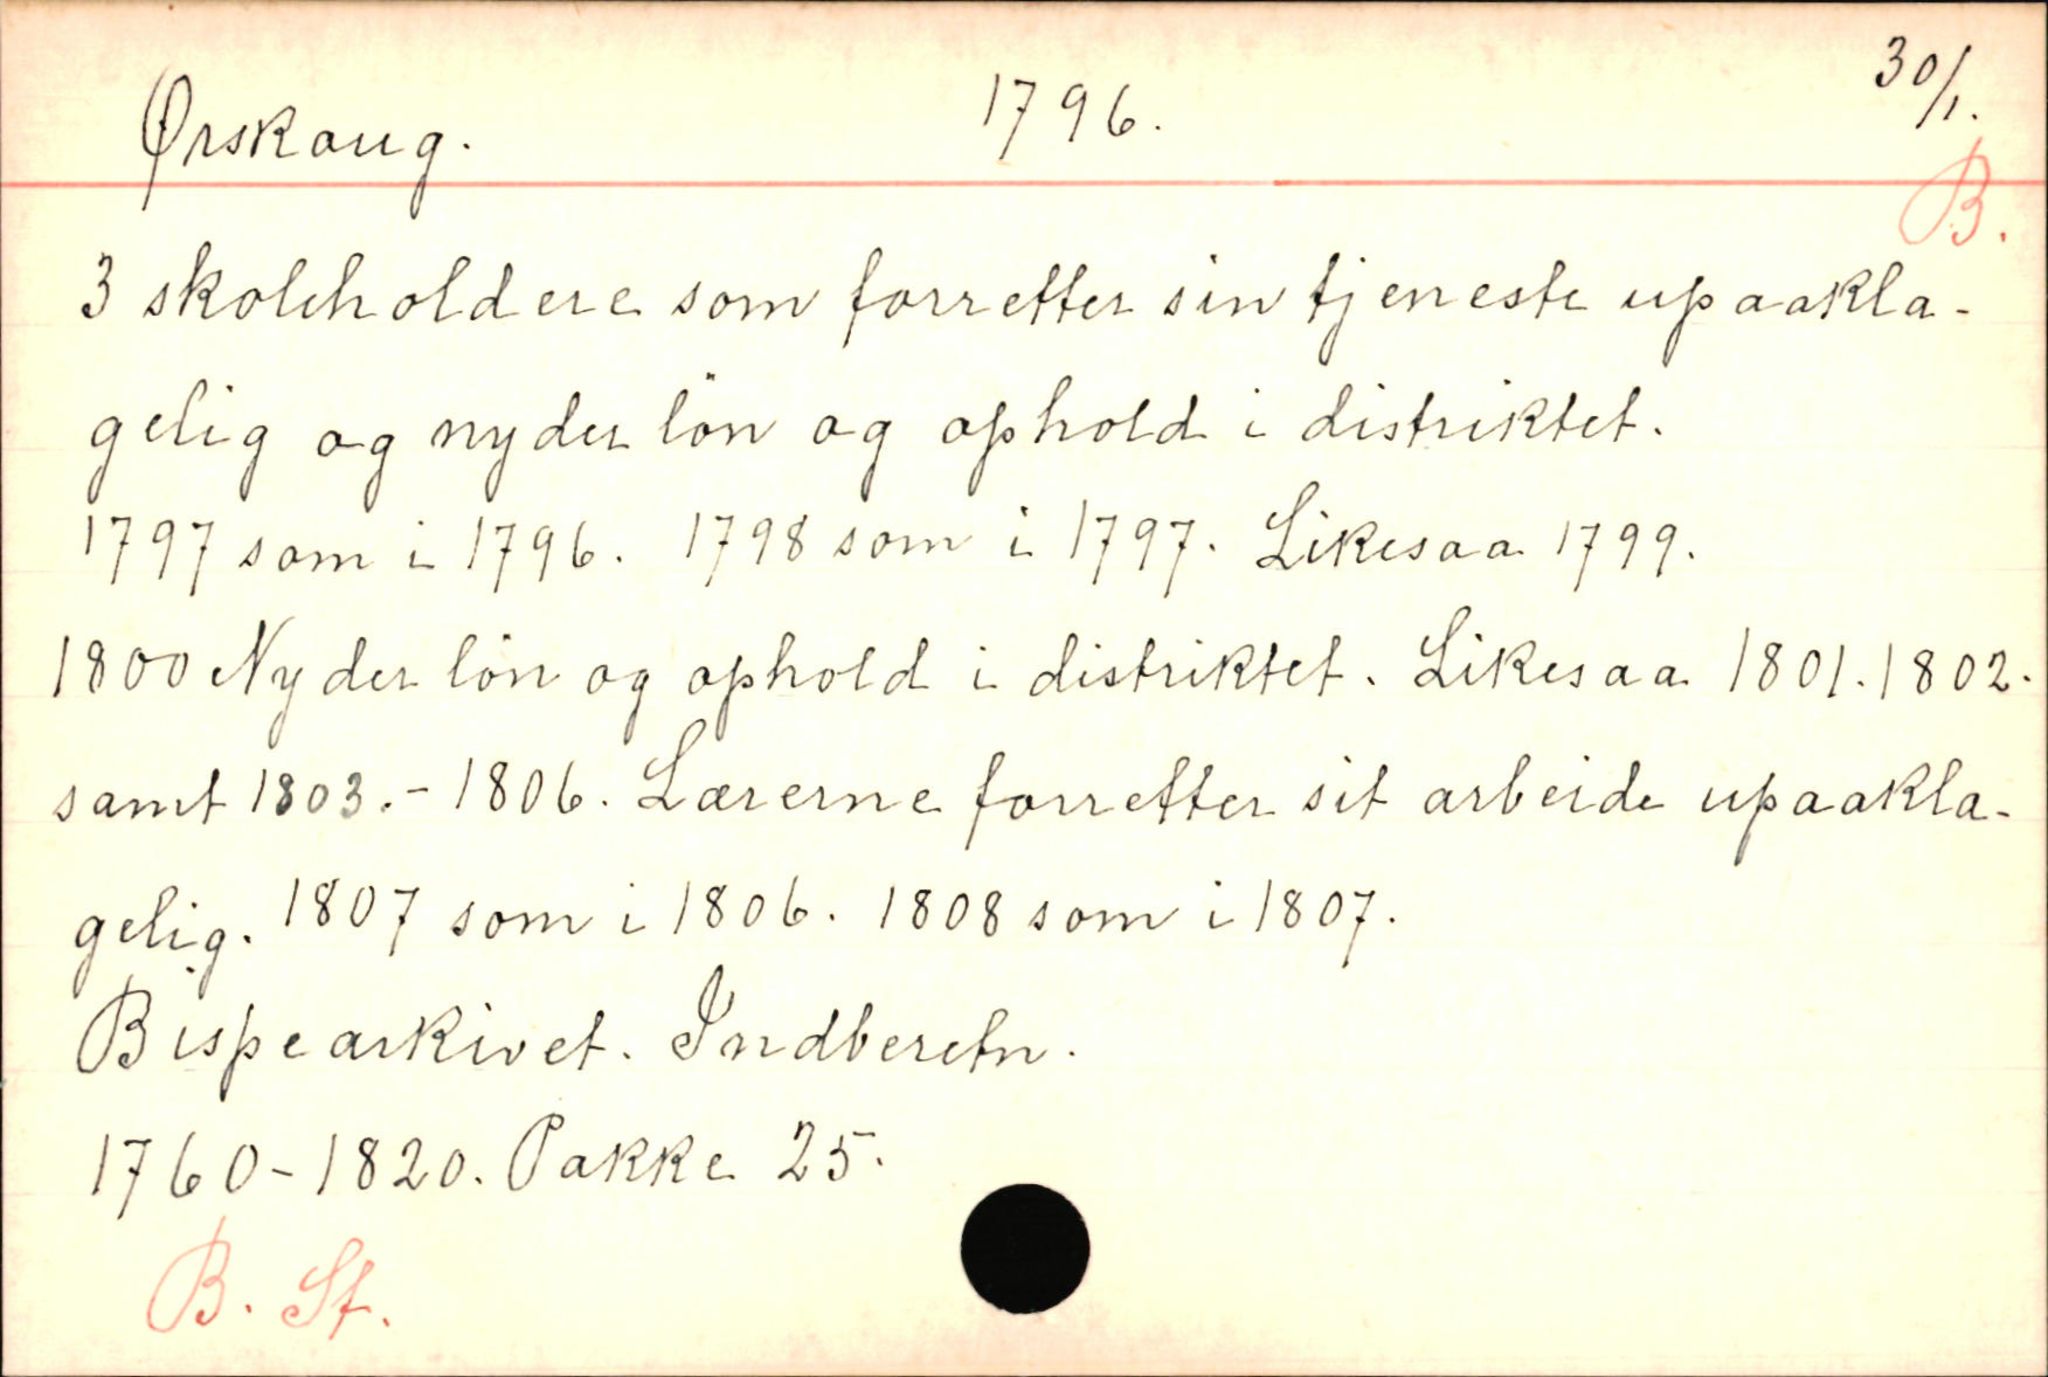 Ørskaug. 1796. 30/1.
B.
3 skoleholdere som forretter sin tjeneste upaakla-
gelig og nyder lön og ophold i distriktet.
1797 som i 1796. 1798 som i 1797. Likesaa 1799.
1800 Nyder lön og ophold i distriktet. Likesaa 1801. 1802.
samt 1803.- 1806. Lærerne forretter sit arbeide upaakla-
gelig. 1807 som i 1806. 1808 som i 1807.
Bispearkivet. Indberetn.
1760-1820. Pakke 25.
B. St.